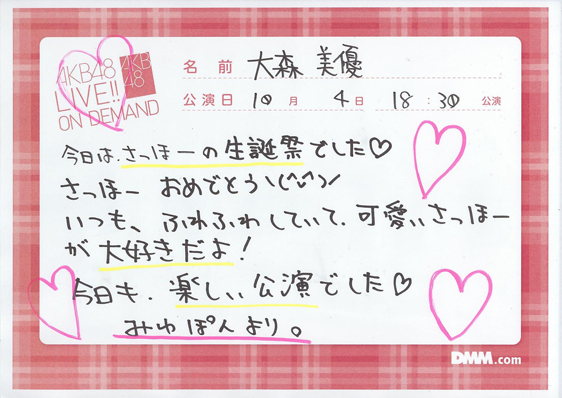 AKB48
LIVE!!
ON DEMAND
AKB
48
名前 大森美優
公演日 10月 4日 18:30 公演
今日は、さっほーの生誕祭でした♡
さっほー おめでとう\(^^)/
いつも、ふわふわしていて、可愛いさっほー
が大好きだよ!
今日も、楽しい公演でした♡
みゆぽんより。
DMM.com